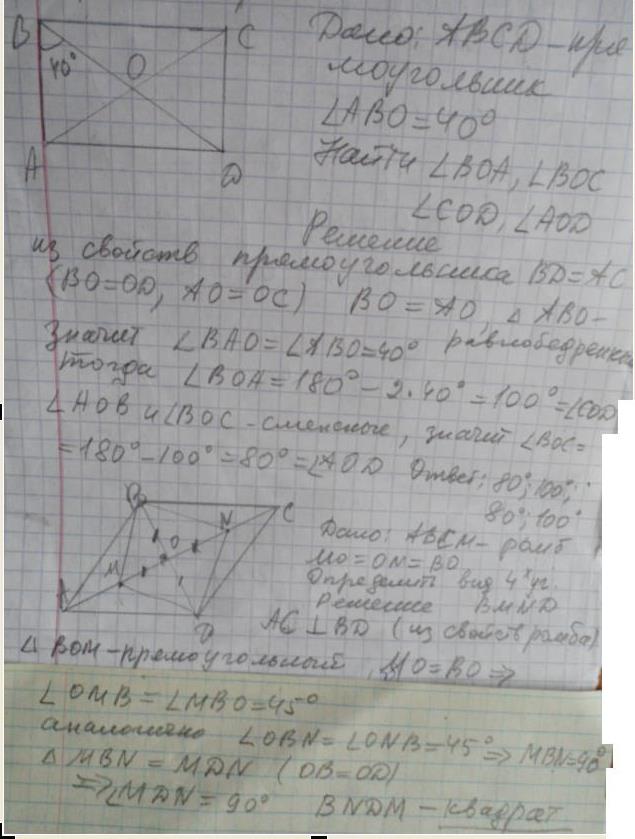 B
C
40°
O
A
D
Дано: ABCD – пря
моугольник
∠ABO = 40°
Найти ∠BOA, ∠BOC
∠COD, ∠AOD
Решение
из свойств прямоугольника BD = AC
(BO = OD, AO = OC) BO = AO, △ ABO –
Значит ∠BAO = ∠ABO = 40° равнобедренный
тогда ∠BOA = 180° – 2·40° = 100° = ∠COD
∠AOB и ∠BOC – смежные, значит ∠BOC =
= 180° – 100° = 80° = ∠AOD Ответ: 80°; 100°;
80°; 100°
B
C
N
O
M
A
D
Дано: ABCM – ромб
MO = ON = BO
Определить вид 4х уг.
Решение BMND
AC ⊥ BD (из свойств ромба)
△ BOM – прямоугольный, MO = BO ⇒
∠OMB = ∠MBO = 45°
аналогично ∠OBN = ∠ONB = 45° ⇒ MBN = 90°
△ MBN = MDN (OB = OD)
⇒ ∠MDN = 90° BNDM – квадрат